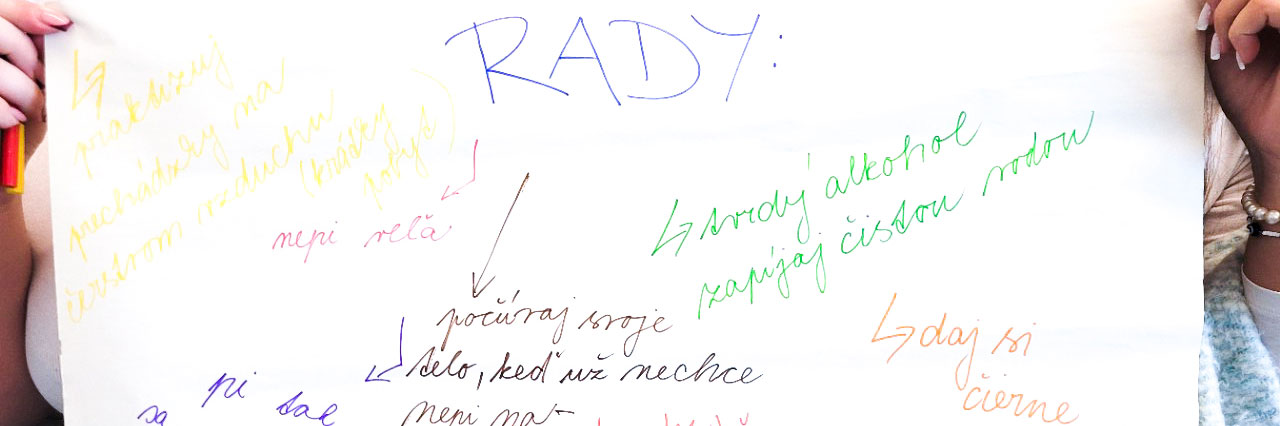 RADY:
praktizuj
prechádzky na
čerstvom vzduchu
(krátky
pobyt)
nepi veľa
tvrdý alkohol
zapíjaj čistou vodou
počúvaj svoje
telo, keď už nechce
nepi na-
daj si
čierne
pi tak